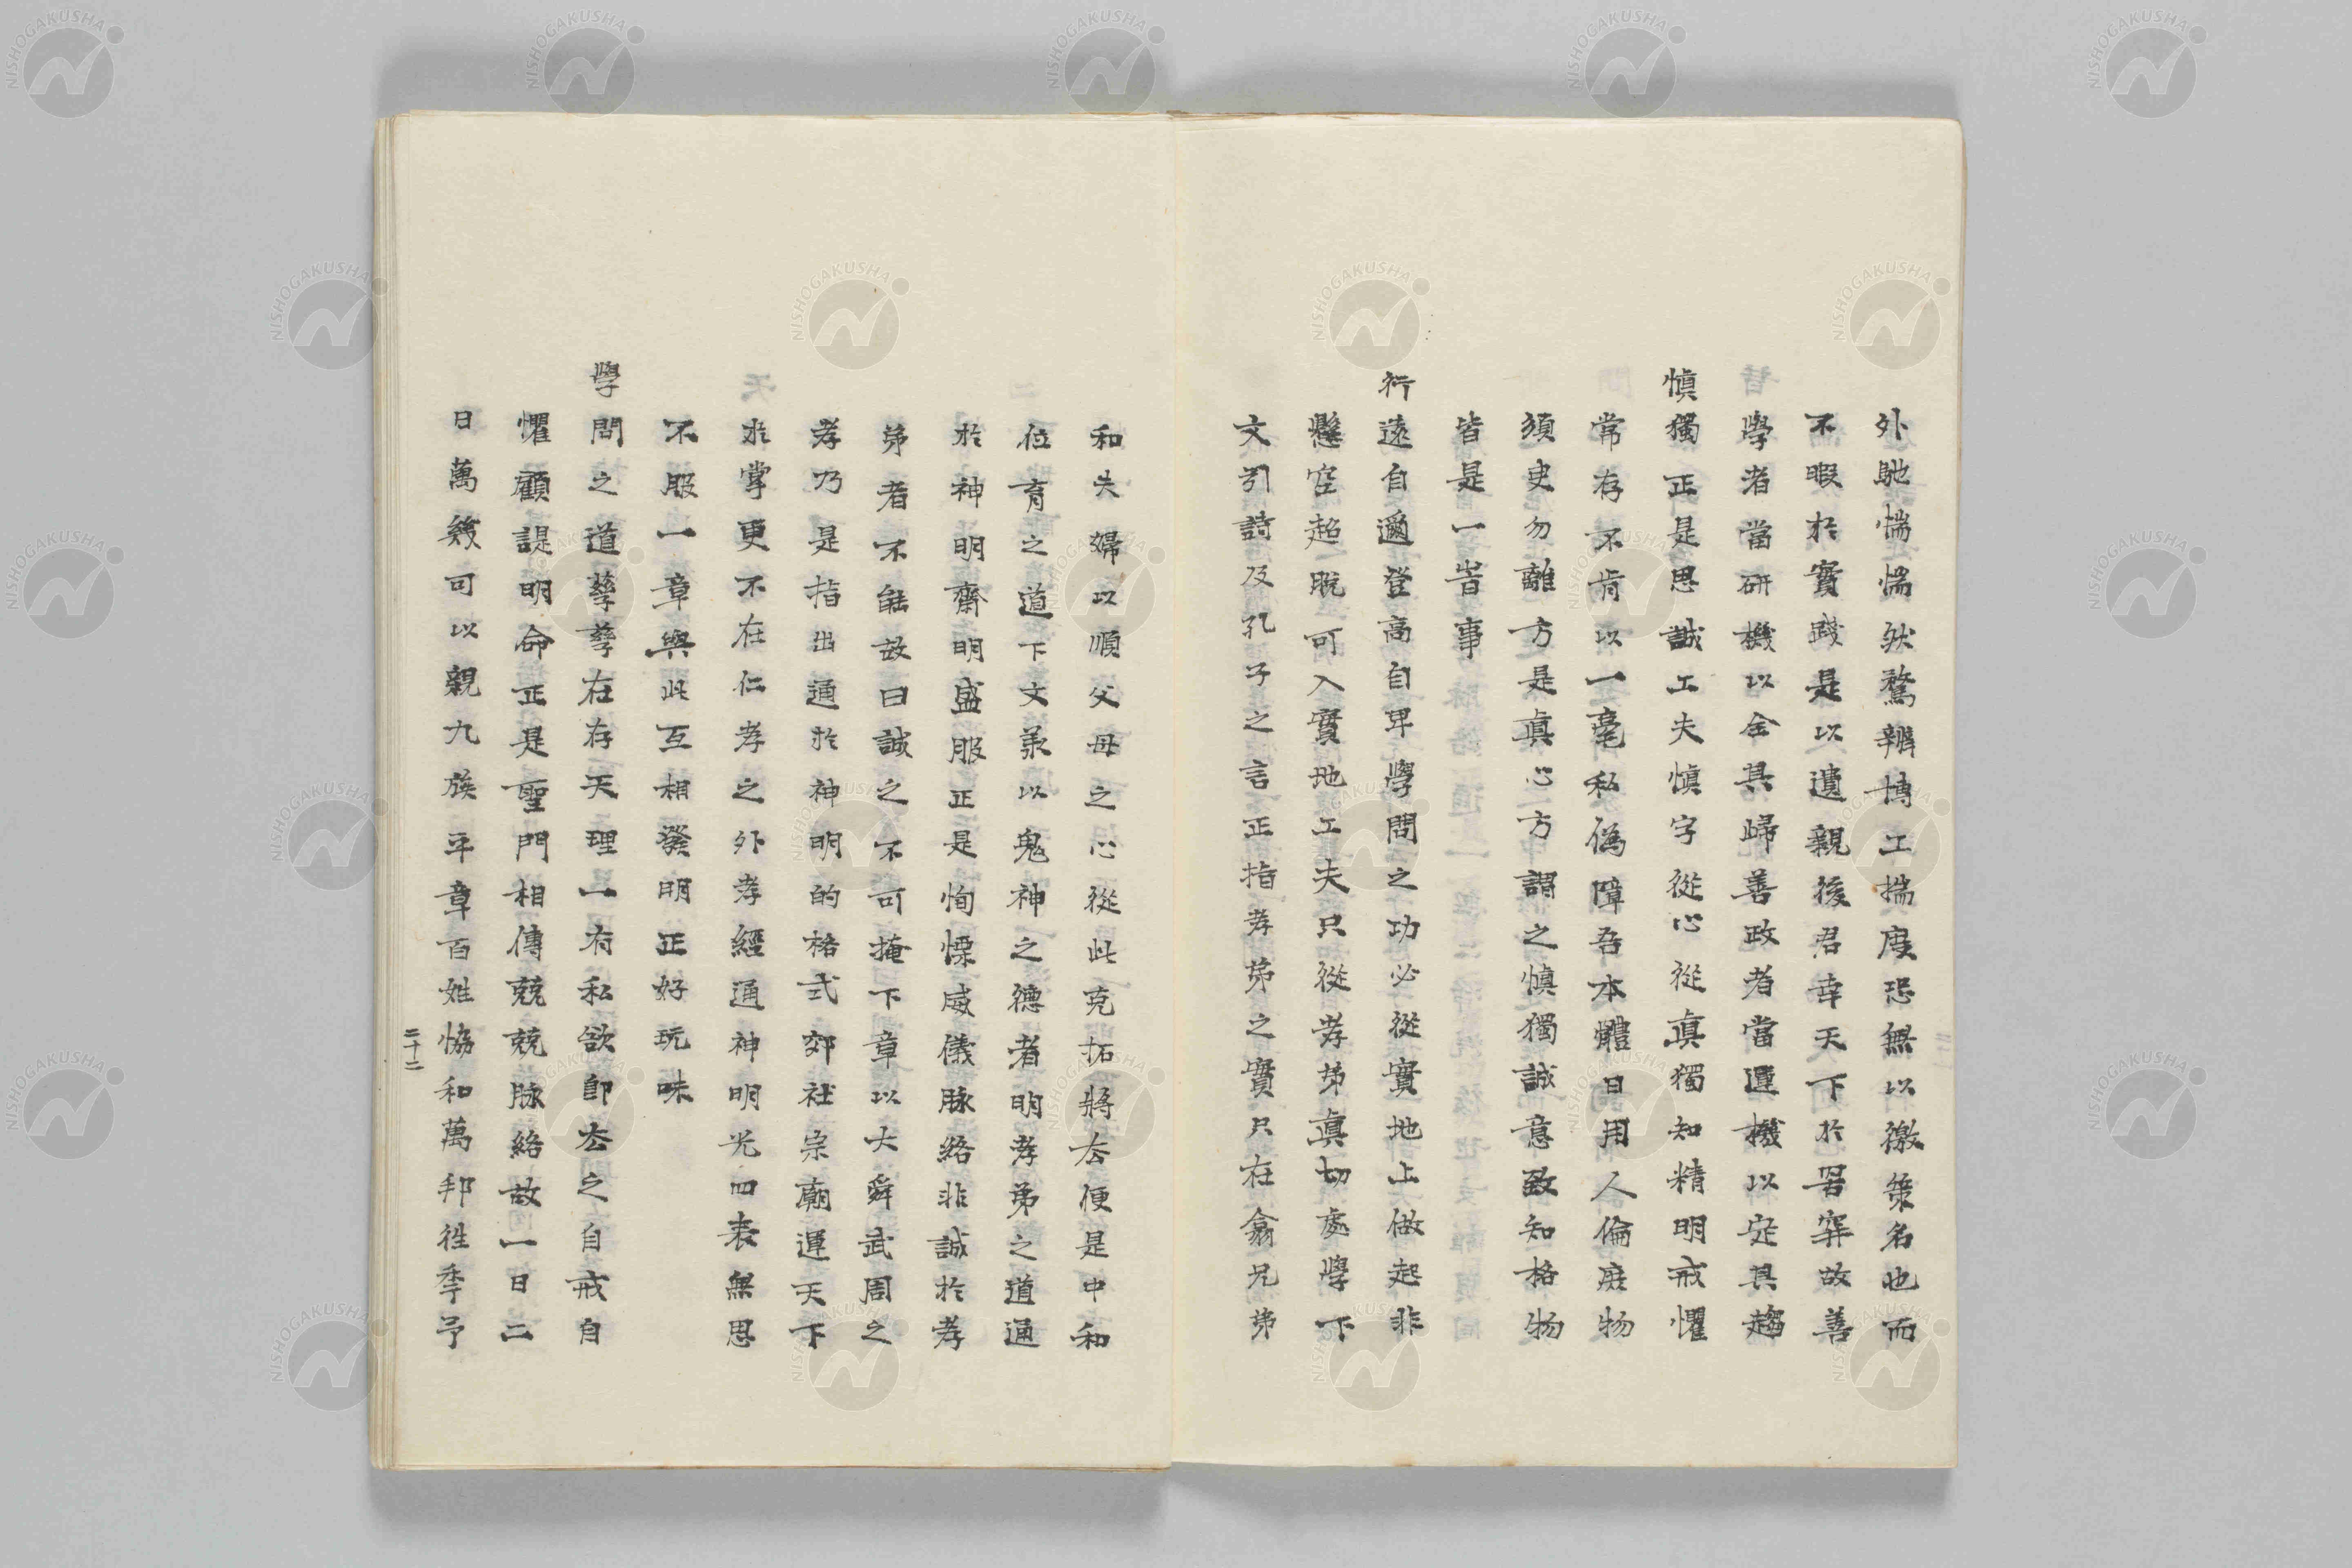 外馳惴惴然騖辨博工揣度恐無以徼策名也而
不暇於實踐是以遺親後君幸天下於罟穽故善
學者當研機以全其歸善政者當運機以定其趨
愼獨正是思誠工夫愼字從心從眞獨知精明戒懼
常存不肯以一毫私僞障吾本體日用人倫庶物
須臾勿離方是眞心方謂之愼獨誠意致知格物
皆是一岦事
行遠自邇登高自卑學問之功必從實地上做起非
懸空超脫可入實地工夫只從孝弟眞切處學下
文引詩及孔子之言正指孝弟之實只在翕兄弟
和夫婦以順父母之心從此克拓將厺便是中和
位育之道下文羕以鬼神之德者明孝弟之道通
於神明齋明盛服正是恂慄威儀脉絡非誠於孝
弟者不能故曰誠之不可掩下章以大舜武周之
孝乃是指出通於神明的格式郊社宗廟運天下
於掌更不在仁孝之外孝經通神明光四表無思
不服一章與此互相發明正好玩味
學問之道孳孳在存天理一有私欲卽厺之自戒自
懼顧諟明命正是聖門相傳兢兢脉絡故一日二
日萬幾可以親九族平章百姓恊和萬邦徃季予
二十二
NISHOGAKUSHA